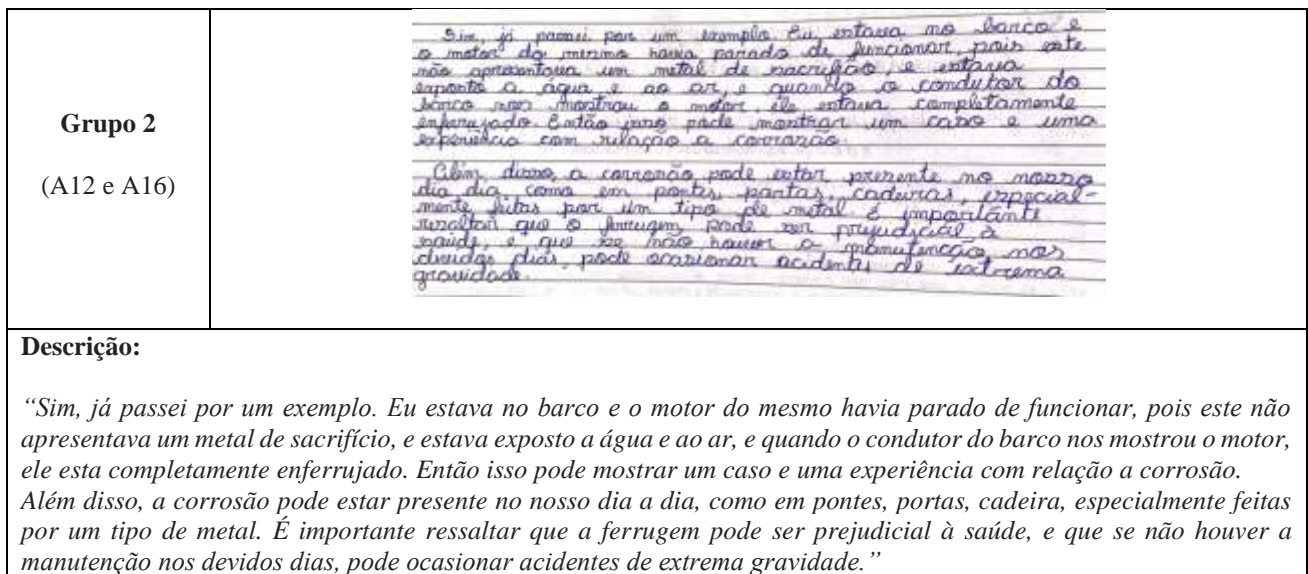 Grupo 2
(A12 e A16)
Sim, já passei por um exemplo. Eu estava no barco e
o motor do mesmo havia parado de funcionar, pois este
não apresentava um metal de sacrifício, e estava
exposto a água e ao ar, e quando o condutor do
barco nos mostrou o motor ele estava completamente
enferrujado. Então isso pode mostrar um caso e uma
experiência com relação a corrosão.
Além disso, a corrosão pode estar presente no nosso
dia dia, como em pontes, portas, cadeiras, especial-
mente feitas por um tipo de metal. É importante
ressaltar que a ferrugem pode ser prejudicial à
saúde, e que se não houver a manutencção nos
devidos dias, pode ocasionar acidentes de extrema
gravidade.
Descrição:
“Sim, já passei por um exemplo. Eu estava no barco e o motor do mesmo havia parado de funcionar, pois este não
apresentava um metal de sacrifício, e estava exposto a água e ao ar, e quando o condutor do barco nos mostrou o motor,
ele esta completamente enferrujado. Então isso pode mostrar um caso e uma experiência com relação a corrosão.
Além disso, a corrosão pode estar presente no nosso dia a dia, como em pontes, portas, cadeira, especialmente feitas
por um tipo de metal. É importante ressaltar que a ferrugem pode ser prejudicial à saúde, e que se não houver a
manutenção nos devidos dias, pode ocasionar acidentes de extrema gravidade.”